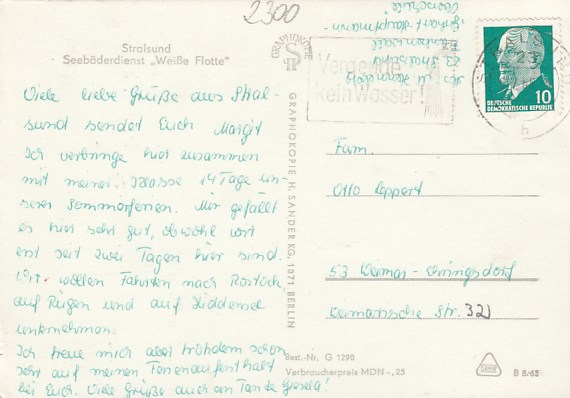 2300
Stralsund
Seebäderdienst „Weiße Flotte“
Viele liebe Grüße aus Stral-
sund sendet Euch Margit
Ich verbringe hier zusammen
mit meiner Klasse 14 Tage un-
serer Sommerferien. Mir gefällt
es hier sehr gut, obwohl wir
erst seit zwei Tagen hier sind.
Wir wollen Fahrten nach Rostock,
auf Rügen und auf Hiddensee
unternehmen.
Ich freue mich aber trotzdem schon
sehr auf meinen Ferienaufenthalt
bei Euch. Viele Grüße auch an Tante Gisela!
GRAPHOKOPIE
GRAPHOKOPIE H. SANDER KG, 1071 BERLIN
Vergeude
kein Wasser!
23 Stralsund
"Gerhart-Hauptmann-
Oberschule"
STRALSUND
h
10
DEUTSCHE
DEMOKRATISCHE REPUBLIK
Fam.
Otto Leppert
53 Weimar-Ehringsdorf
Weimarische Str. 32
Best.-Nr. G 1290
Verbraucherpreis MDN -,25
B 8/65